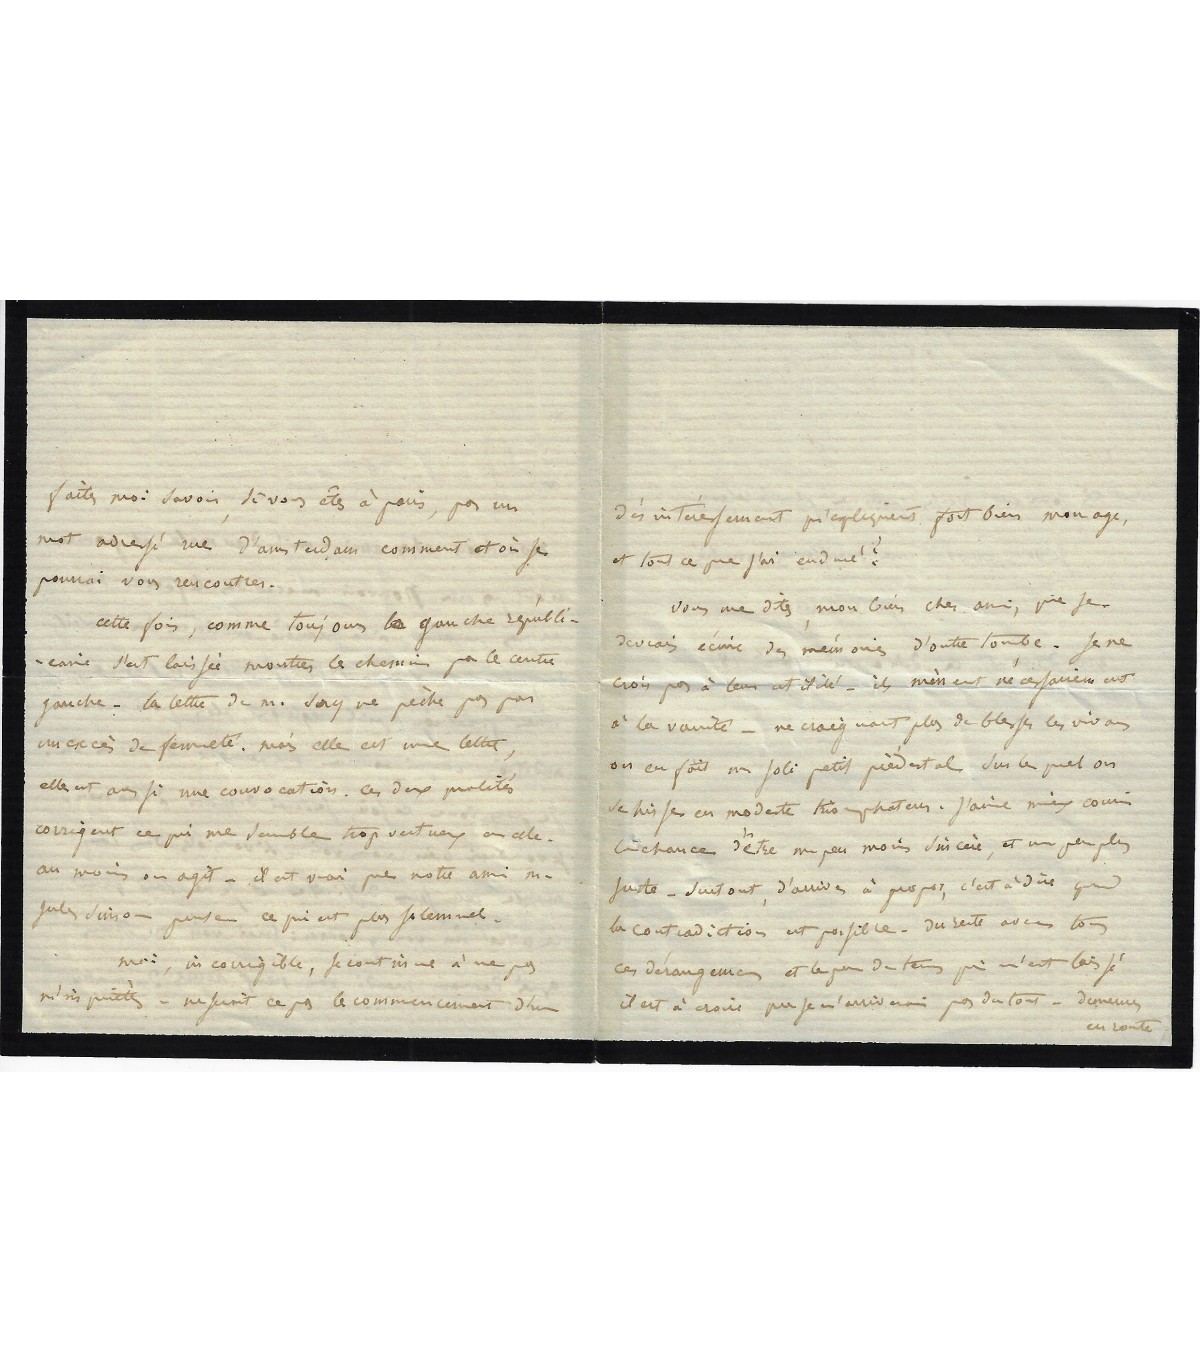 faites moi savoir, si vous êtes à paris, par un
mot adressé rue d'amsterdam comment et où je
pourrai vous rencontrer.
cette fois, comme toujours la gauche républi-
-caine s'est laissée montrer le chemin par le centre
gauche - la lettre de m. ne pèche pas par
un excès de fermeté. mais elle est une lettre,
elle est aussi une convocation. ces deux qualités
corrigent ce qui me semble trop vertueux en elle.
au moins on agit - il est vrai que notre ami m.
jules Simon pense ce qui est plus solemnel -
moi, incorrigible, je continue à ne pas
m'inquiéter - ne serait ce pas le commencement d'un
désintéressement qu'expliquent fort bien mon age,
et tout ce que j'ai enduré?
vous me dites, mon bien cher ami, que je
devrais écrire des mémoires d'outre tombe - je ne
crois pas à leur utilité - ils mènent nécessairement
à la vanité - ne craignant plus de blesser les vivans
on en fait un joli petit piédestal sur lequel on
se hisse en modeste triomphateur. j'aime mieux courir
la chance d'être un peu moins sincère, et un peu plus
juste - surtout, d'arriver à propos, c'est à dire quand
la contradiction est possible - du reste avec tous
ces dérangemens et le peu de tems qui m'est laissé
il est à croire que je n'arriverai pas du tout - demeurer
en route